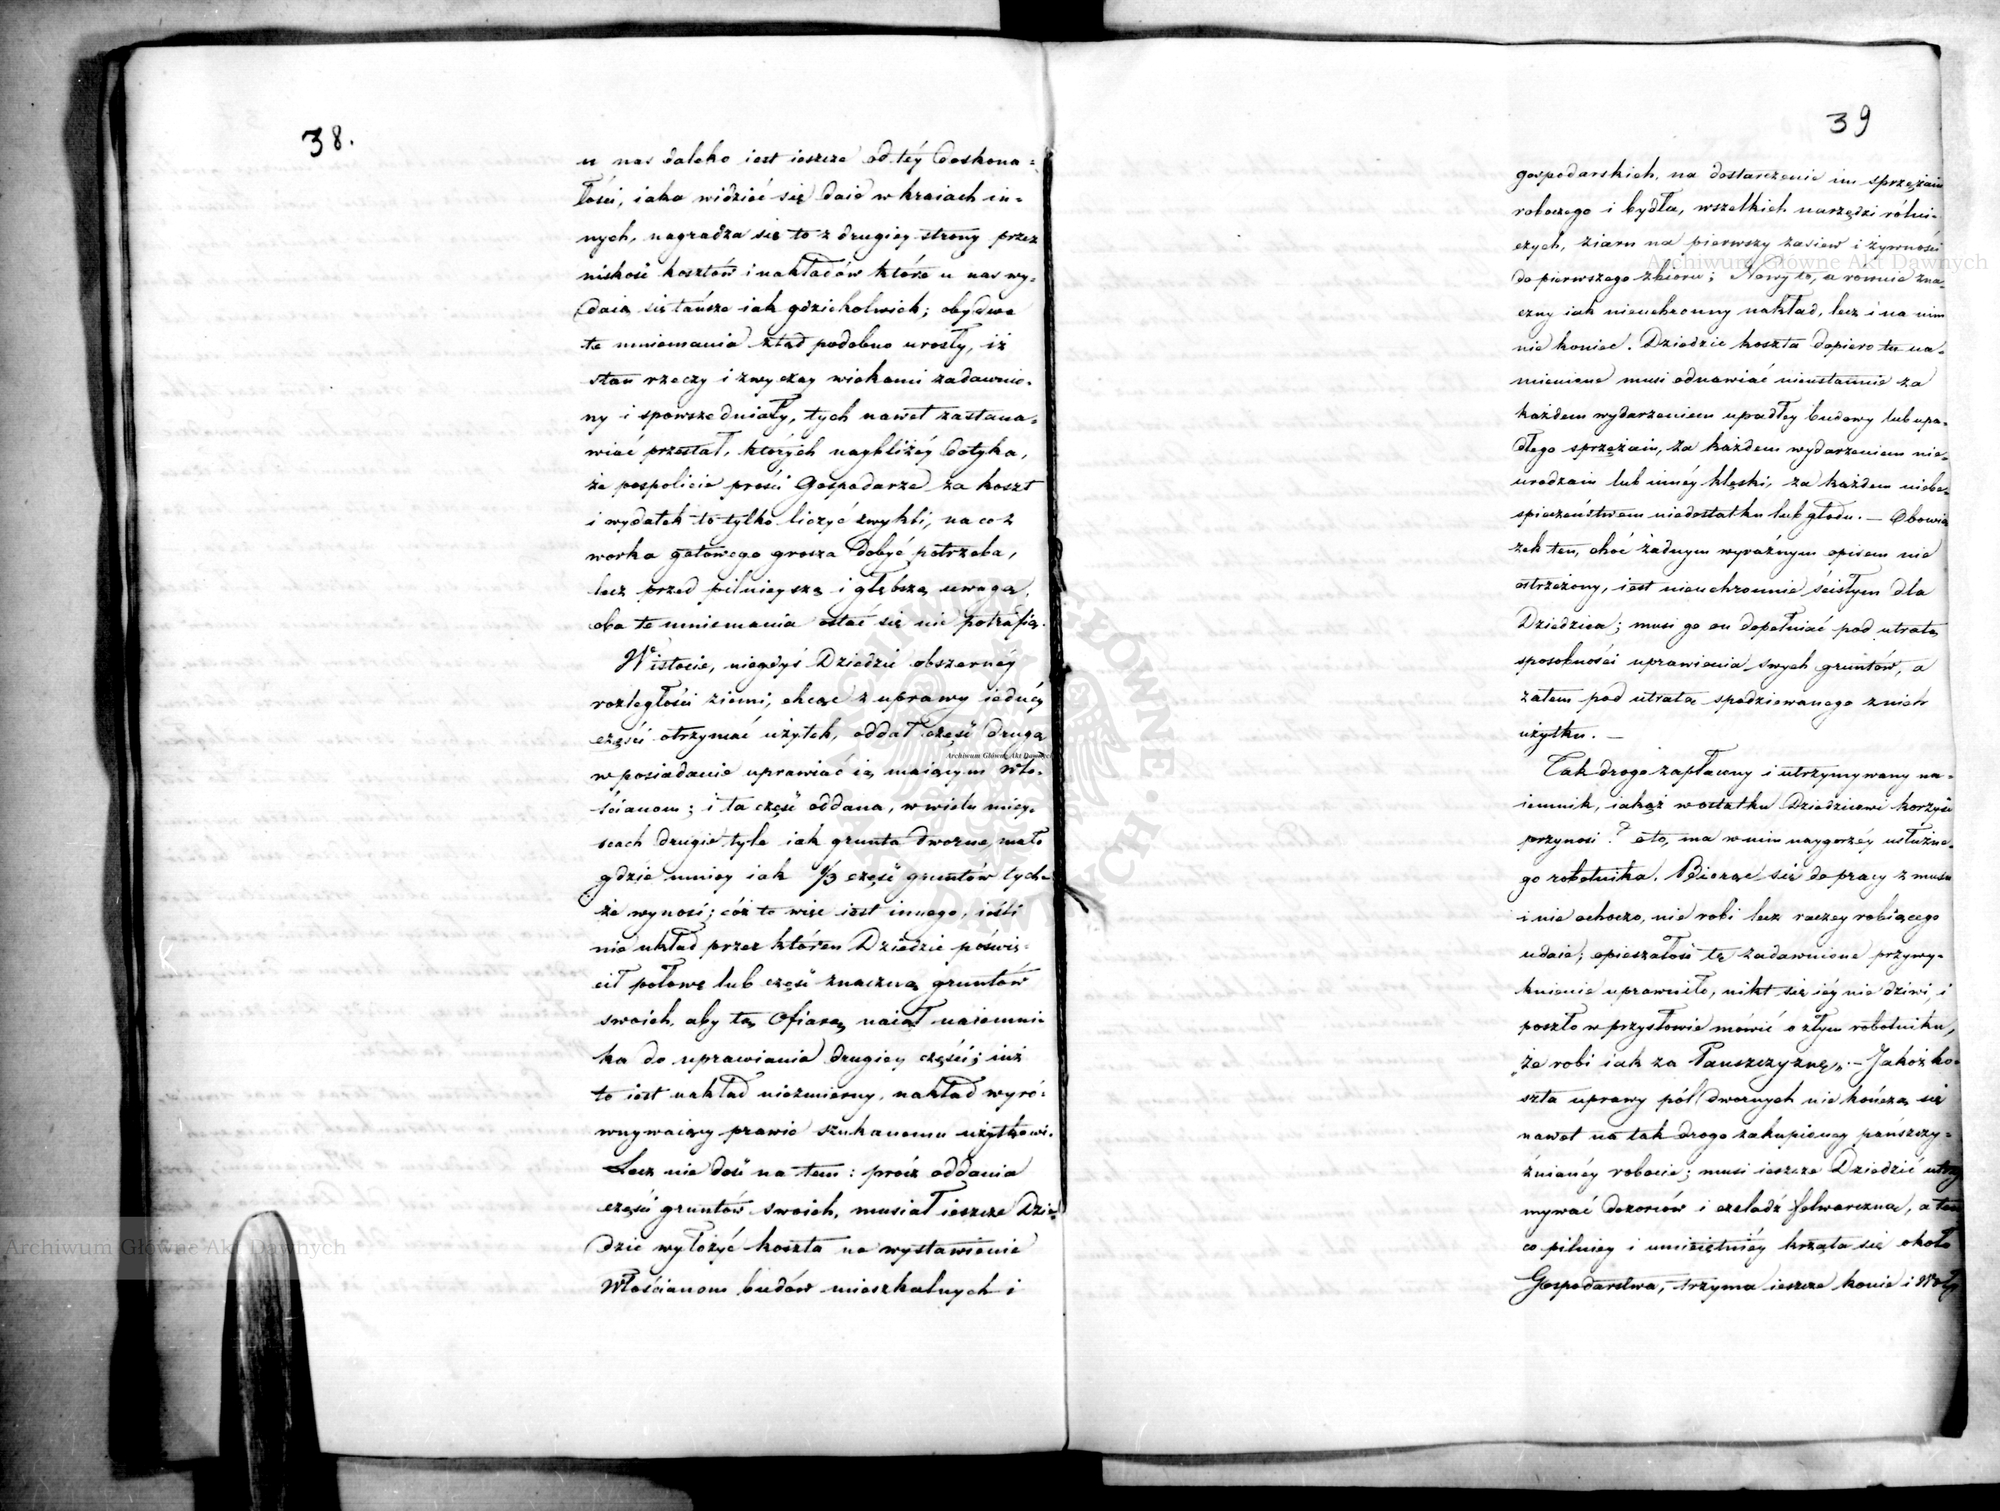 38.
u nas daleko iest ieszcze od téy doskona=
łości, iaka widzieć się daie w kraiach in=
nych, nagradza się to z drugiey strony przez
niskość kosztów i nakładów które u nas wy=
daią się tańsze iak gdziekolwiek; obydwa
te mniemania ztąd podobno urosły, iż
stan rzeczy i zwyczay wiekami zadawnio=
ny i spowszedniały, tych nawet zastana=
wiać przestał, których naybliżéy dotyka,
że pospolicie prości Gospodarze za koszt
i wydatek to tylko liczyć zwykli, na co z
worka gotowego grosza dobyć potrzeba,
lecz przed pilnieyszą i głębszą uwagą,
oba te mniemania ostać się nie potrafią.
W istocie, niegdyś Dziedzic obszernéy
rozległości ziemi, chcąc z uprawy iednéy
części otrzymać użytek, oddał część drugą
w posiadanie uprawiać ią maiącym Wło=
ścianom; i ta część oddana, w wielu miey=
scach drugie tyle iak grunta dworne, mało
gdzie mniey iak 1/3 część gruntów tych=
że wynosi; cóż to więc iest innego, ieśli
nie układ przez któren Dziedzic poświę=
cił połowę lub część znaczną gruntów
swoich, aby tą Ofiarą naiął naiemni=
ka do uprawiania drugiey części; iuż
to iest nakład niezmierny, nakład wyró=
wnywaiący prawie szukanemu użytkowi.
Lecz nie dość na tem: prócz oddania
części gruntów swoich, musiał ieszcze Dzie=
dzic wyłożyć koszta na wystawienie
Włościanom budów mieszkalnych i
39
gospodarskich, na dostarczenie im sprzężaiu
roboczego i bydła, wszelkich narzędzi rólni=
czych, ziarn na pierwszy zasiew i żywności
do pierwszego zbioru; Nowy to, a rownie zna=
czny iak nieuchronny nakład, lecz i na nim
nie koniec. Dziedzic koszta dopiero tu na=
mienione musi odnawiać nieustannie za
każdem wydarzeniem upadłey budowy lub upa=
dłego sprzężaiu, za każdem wydarzeniem nie=
urodzaiu lub innéy klęski, za każdem niebe=
spieczeństwem niedostatku lub głodu. — Obowią
zek ten, choć żadnym wyraźnym opisem nie
ostrzeżony, iest nieuchronnie ścisłym dla
Dziedzica; musi go on dopełniać pod utratą
sposobności uprawienia swych gruntów, a
zatem pod utratą spodziewanego z nich
użytku. —
Tak drogo zapłacony i utrzymywany na=
iemnik, iakąż w ostatku Dziedzicowi korzyść
przynosi? oto, ma w nim naygorzéy usłużne=
go robotnika. Biorąc się do pracy z musu
i nie ochoczo, nie robi lecz raczey robiącego
udaie; opieszałość tę zadawnione przywy=
knienie uprawniło, nikt się iéy nie dziwi, i
poszło w przysłowie mówić o złym robotniku,
„że robi iak za Pańszczyznę„. — Jakoż ko=
szta uprawy pól dwornych nie kończą się
nawet na tak drogo zakupioney pańszczy=
źnianéy robocie; musi ieszcze Dziedzic utrzy
mywać dozorców i czeladź folwarczną, a ten
co pilniey i umieiętniéy krząta się około
Gospodarstwa, trzyma ieszcze konie i Woły
Archiwum Główne Akt Dawnych
Archiwum Główne Akt Dawnych
Archiwum Główne Akt Dawnych